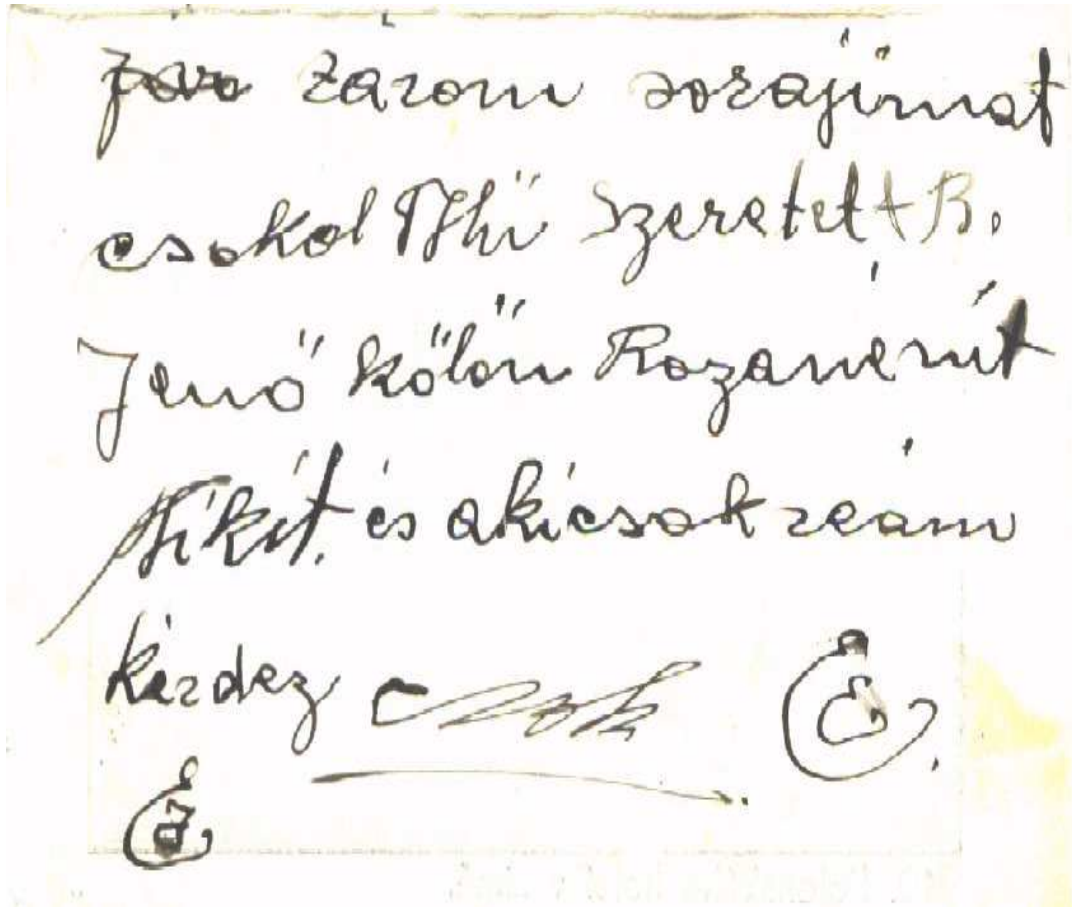 zárom sorajimat
csokol hű szeretett B.
Jenő kőlőn Rozanénit
Nikit. és akicsak reám
kérdez Csok